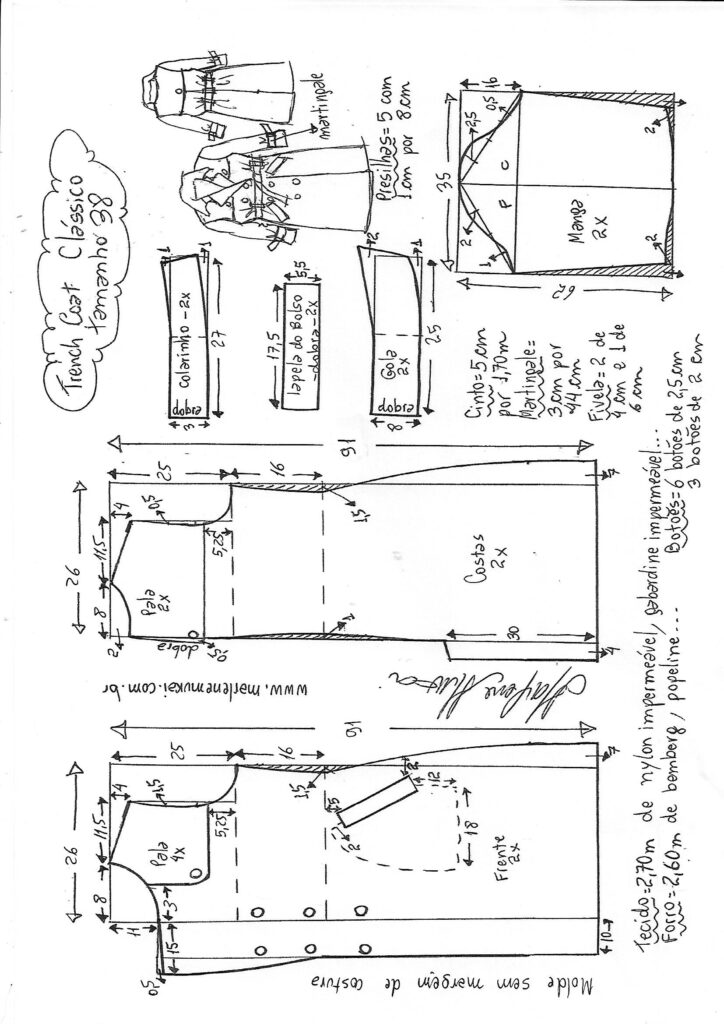 Trench Coat Clássico
tamanho 38
martingale
Presilhas = 5 com
1 cm por
8 cm
16
0,5
2,5
35
F
C
2
1
Manga
2x
2
2
62
1
1
colarinho - 2x
dobra
3
27
5,5
17,5
lapela do Bolso
-dobra-2x
2
Gola
2x
dobra
8
25
Cinto = 5 cm
por 1,70m
Martingale =
3 cm por
44 cm
Fivela = 2 de
4 cm e 1 de
6 cm
91
25
16
26
4
0,5
11,5
8
5,25
Pala
2x
2
dobra
0,5
1,5
1
Costas
2x
30
7
4
www.marlenemukai.com.br
91
25
16
26
4
1,5
11,5
8
5,25
Pala
4x
3
11
15
0,5
1,5
2
12
5
2
18
Frente
2x
7
10
Molde sem margem de costura
Tecido = 2,70m de nylon impermeável, gabardine impermeável...
Forro = 2,60m de bamberg, popeline...
Botões = 6 botões de 2,5 cm
3 botões de 2 cm